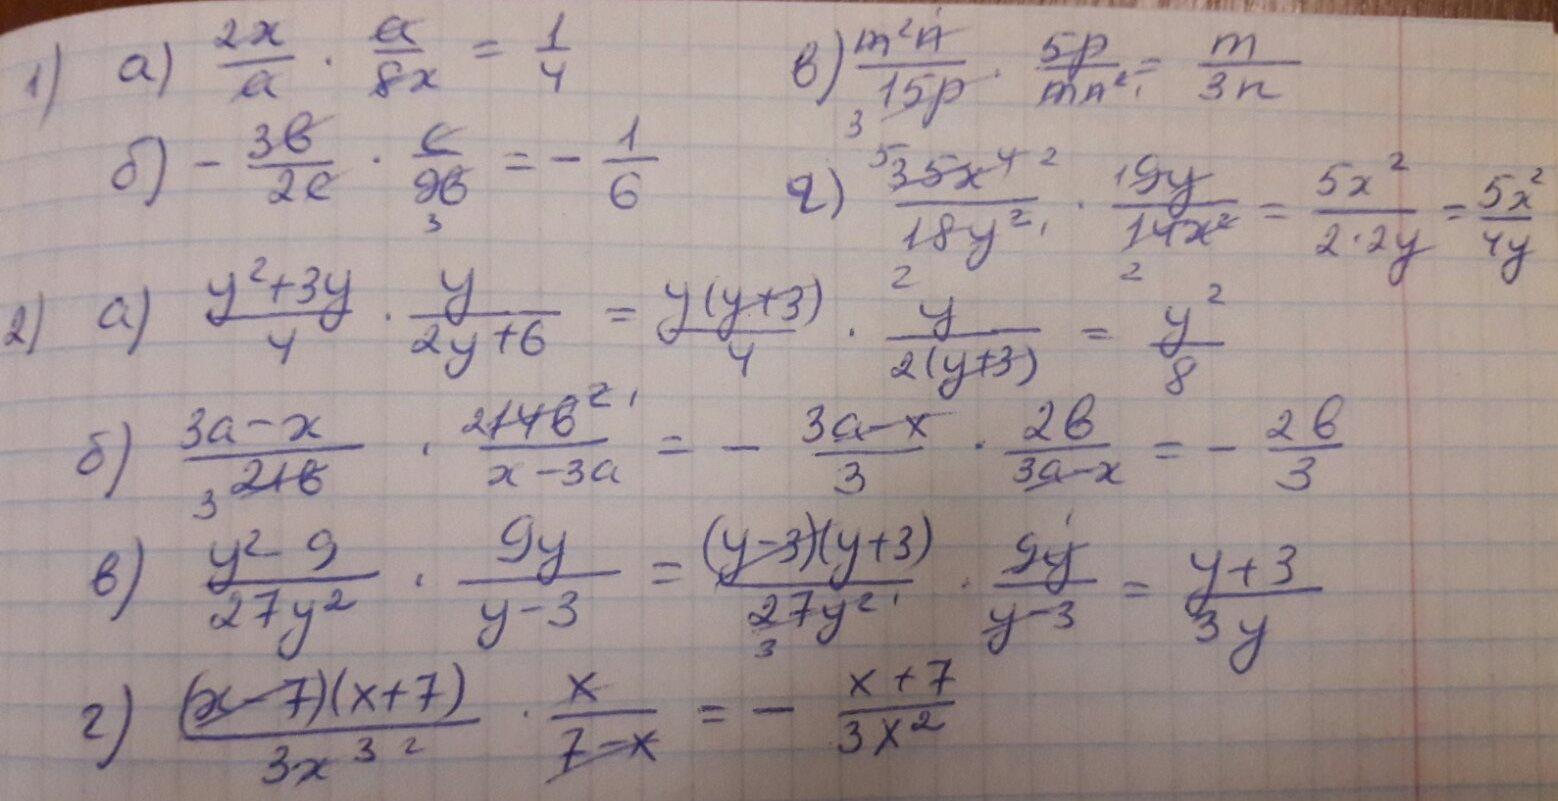 1) а) 2x/a · a/8x = 1/4 в) m²n/15p · 5p/mn² = m/3n
б) - 3b/2c · c/9b = - 1/6 г) 35x⁴/18y² · 9y/14x² = 5x²/2·2y = 5x²/4y
2) а) y²+3y/4 · y/2y+6 = y(y+3)/4 · y/2(y+3) = y²/8
б) 3a-x/21b · 14b²/x-3a = - 3a-x/3 · 2b/3a-x = - 2b/3
в) y²-9/27y² · 9y/y-3 = (y-3)(y+3)/27y² · 9y/y-3 = y+3/3y
г) (x-7)(x+7)/3x³ · x/7-x = - x+7/3x²